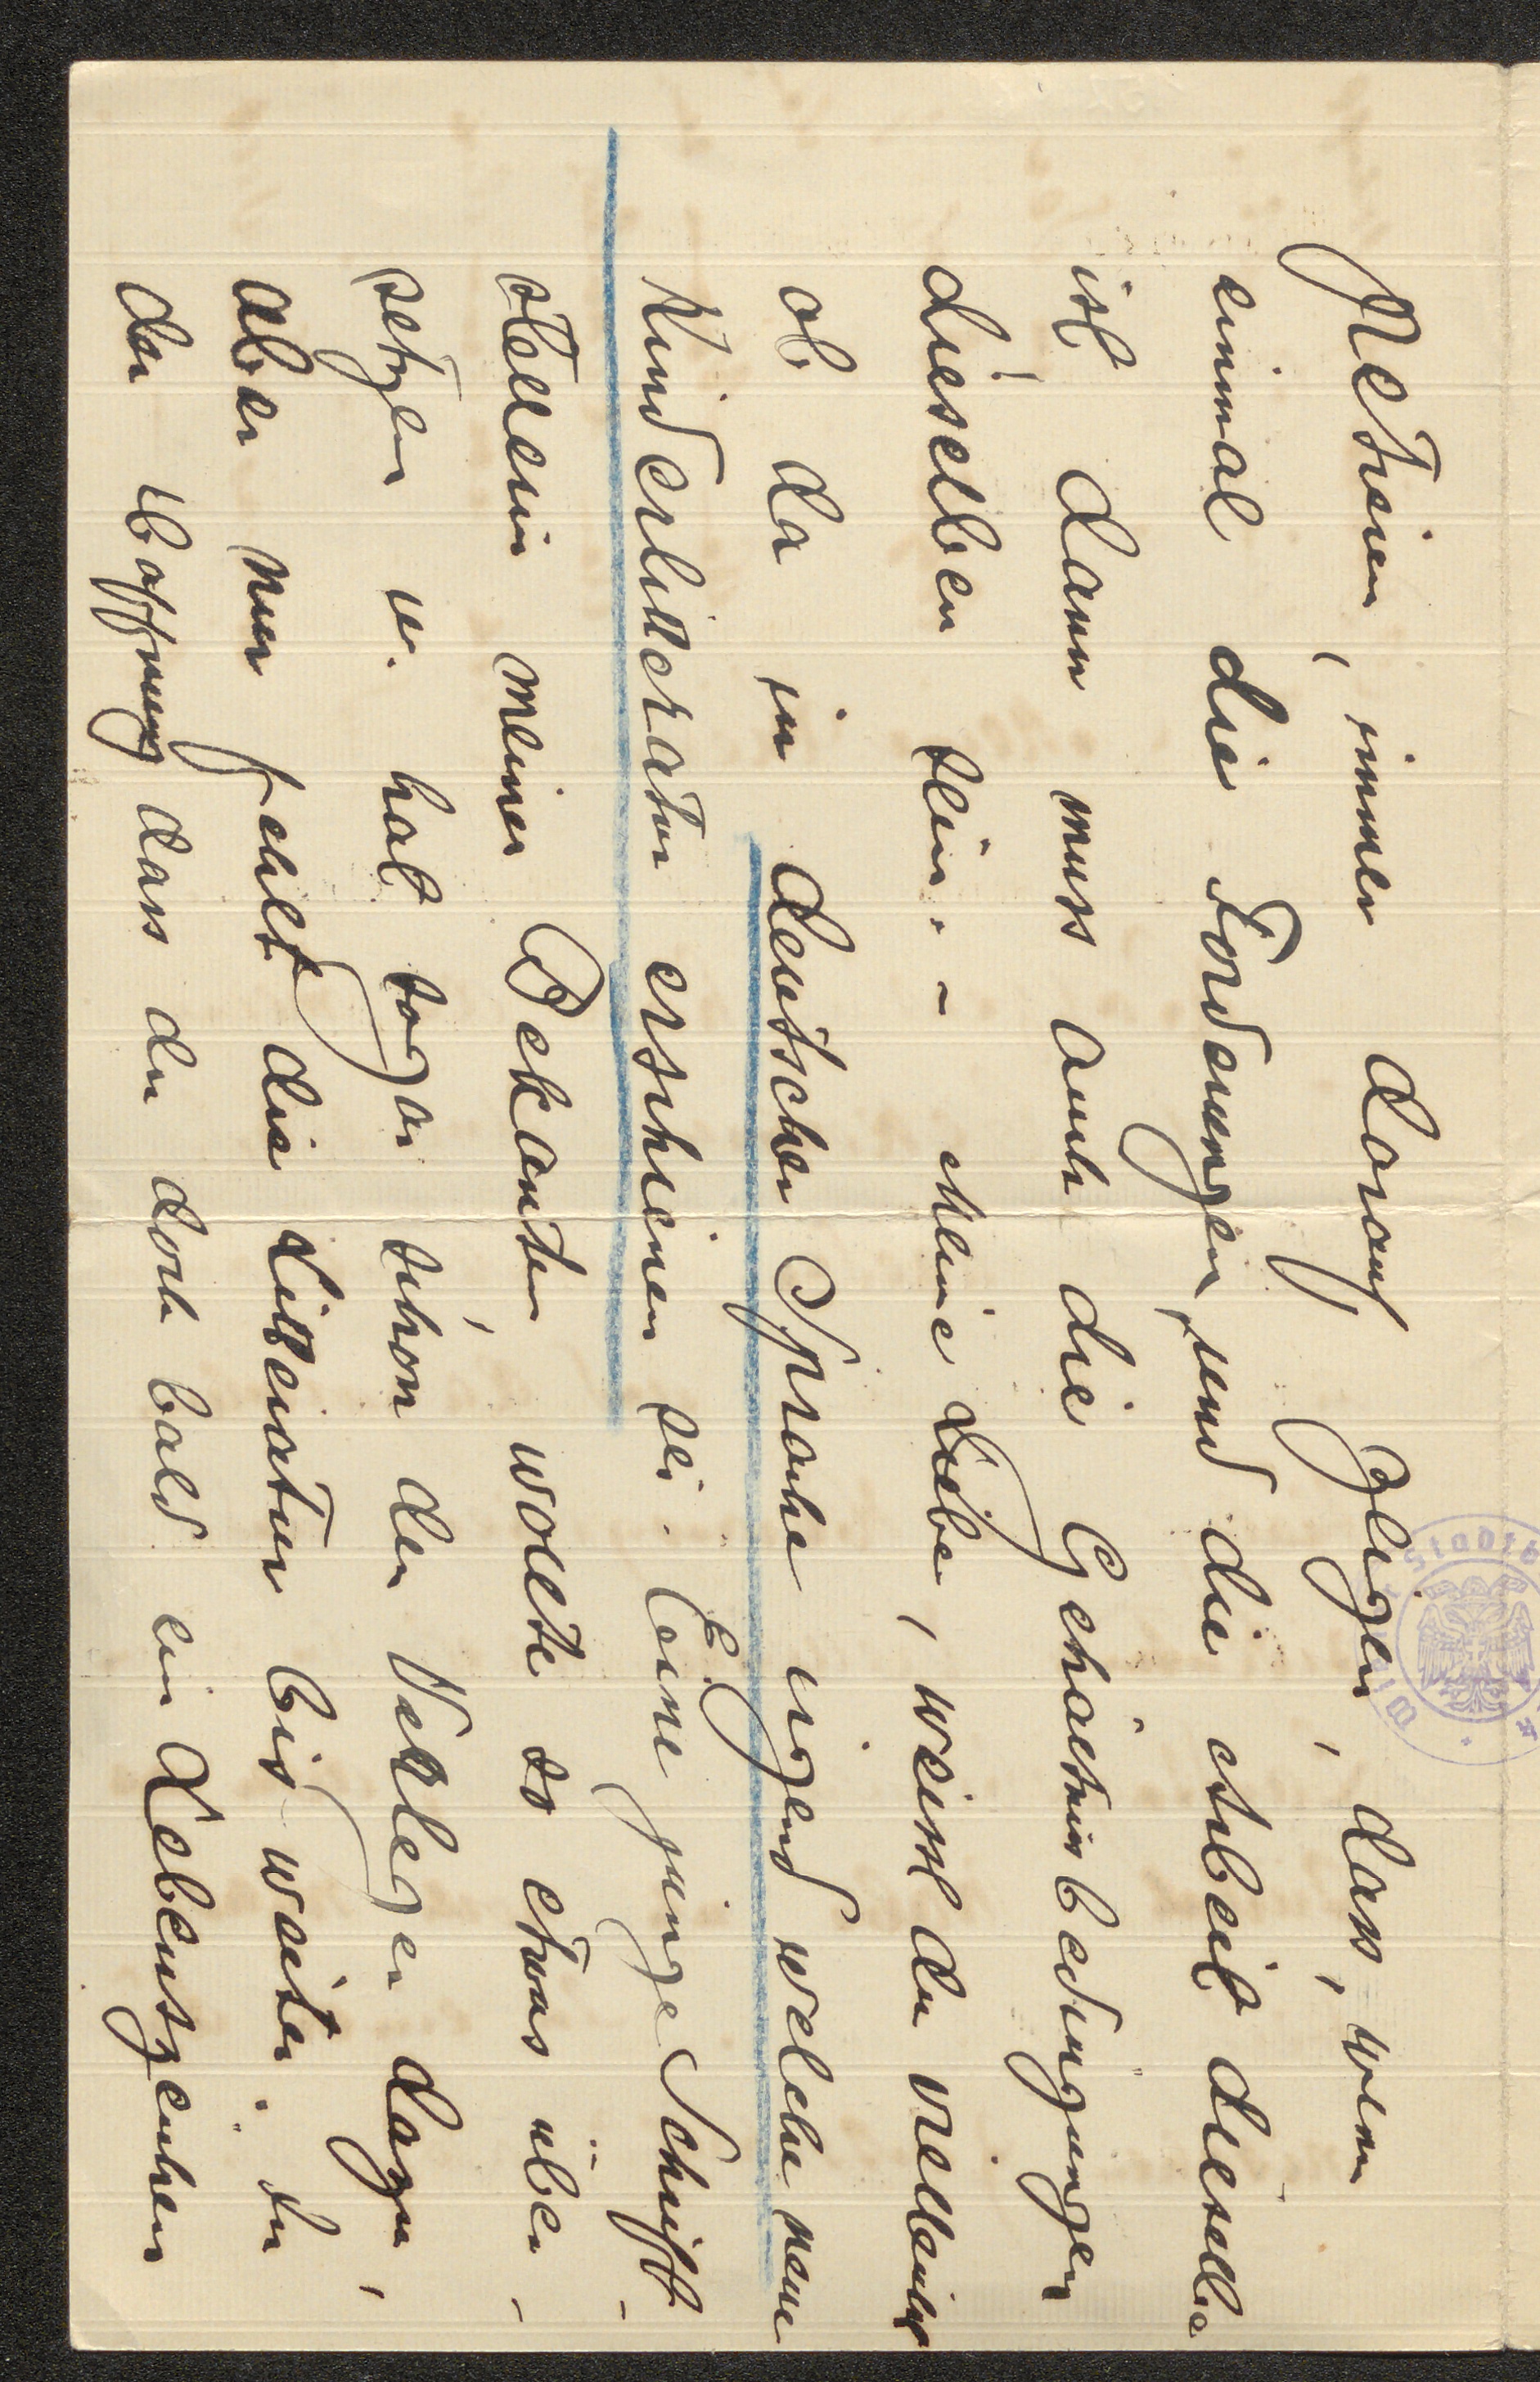 Metrien, immer darauf zeigen, dass, wenn
einmal die Forderungen, und die Arbeit dieselbe
ist, dann muss auch die Gehältnisbedingungen
dieselben sein. - Meine Liebe, weisst du vielleicht
ob da in deutscher Sprache irgend welche neue
Kinderlitteratur erschienen sei. Eine junge Schrift-
stellerin meiner Bekanten, wollte so etwas über-
setzen u. hat sogar schon den Verleger dazu,
aber nur fehlt die Litteratur bis weiter. In
der Hoffnung dass du doch bald ein Lebenszeichen
Stadtb
Wie